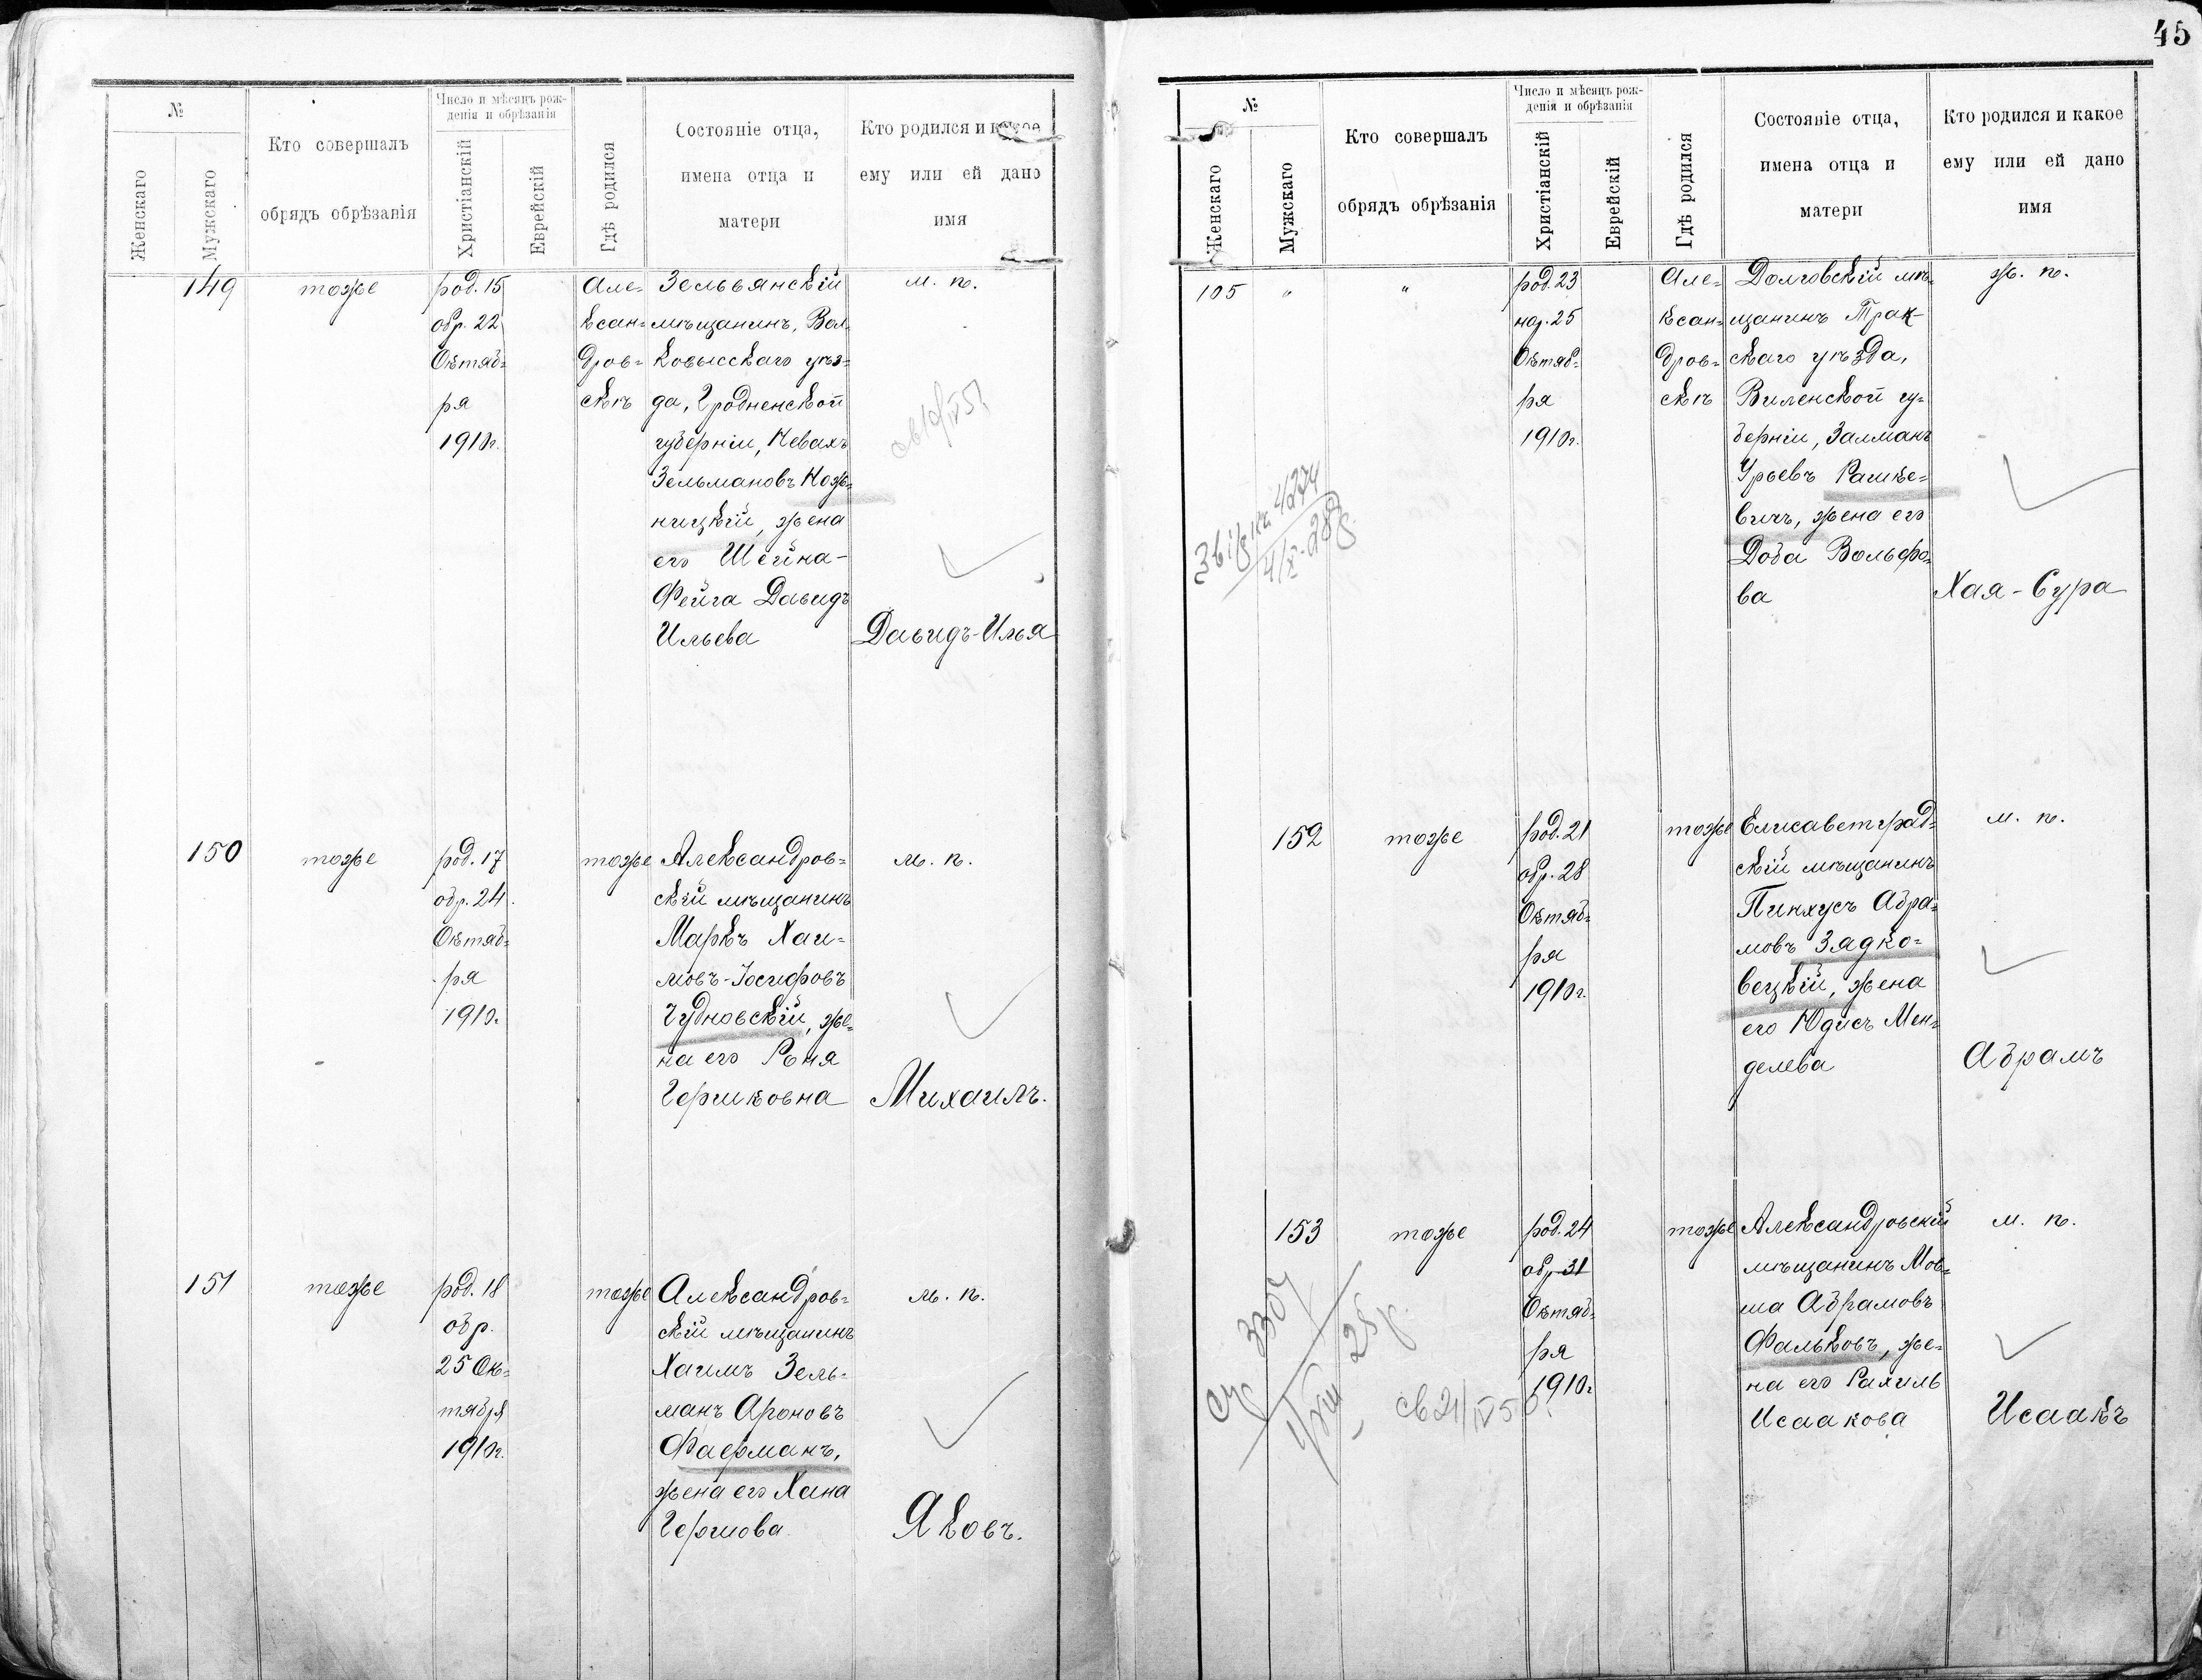 45
№
Женскаго
Мужскаго
Кто совершалъ
обрядъ обрѣзанія
Число и мѣсяцъ рож-
денія и обрѣзанія
Христіанскій
Еврейскій
Гдѣ родился
Состояніе отца,
имена отца и
матери
Кто родился и какое
ему или ей дано
имя
149
тоже
род. 15
обр. 22
Октяб-
ря
1910г.
Але-
ксан-
дров-
скѣ
Зельвянскій
мѣщанинъ, Вол-
ковысскаго уѣз-
да, Гродненской
губерніи, Невахъ
Зельмановъ Кож-
ницкій, жена
его Шейна-
Фейга Давидъ
Ильева
м. п.
Давидъ-Илья
150
тоже
род. 17
обр. 24.
Октяб-
ря
1910г.
тоже
Александров-
скій мѣщанинъ
Маркъ Хаи-
мовъ-Іосифовъ
Чудновскій, же-
на его Роня
Гершковна
м. п.
Михаилъ.
151
тоже
род. 18
обр.
25 Ок-
тября
1910г.
тоже
Александров-
скій мѣщанинъ
Хаимъ Зель-
манъ Ароновъ
Фаерманъ,
жена его Хана
Гершова
м. п.
Яковъ.
№
Женскаго
Мужскаго
Кто совершалъ
обрядъ обрѣзанія
Число и мѣсяцъ рож-
денія и обрѣзанія
Христіанскій
Еврейскій
Гдѣ родился
Состояніе отца,
имена отца и
матери
Кто родился и какое
ему или ей дано
имя
105
"
"
род. 23
нар. 25
Октяб-
ря
1910г.
Але-
ксан-
дров-
скѣ
Долговскій мѣ-
щанинъ Трак-
скаго уѣзда,
Виленской гу-
берніи, Залманъ
Урьевъ Рашке-
вичъ, жена его
Доба Вольфо-
ва
ж. п.
Хая-Сура
152
тоже
род. 21
обр. 28
Октяб-
ря
1910г.
тоже
Елисаветград-
скій мѣщанинъ
Пинхусъ Абра-
мовъ Задко-
вецкій, жена
его Юдисъ Мен-
делева
м. п.
Абрамъ
153
тоже
род. 24
обр 31
Октяб-
ря
1910г
тоже
Александровскій
мѣщанинъ Мов-
ша Абрамовъ
Фальковъ, же-
на его Рахиль
Исаакова
м. п.
Исаакъ